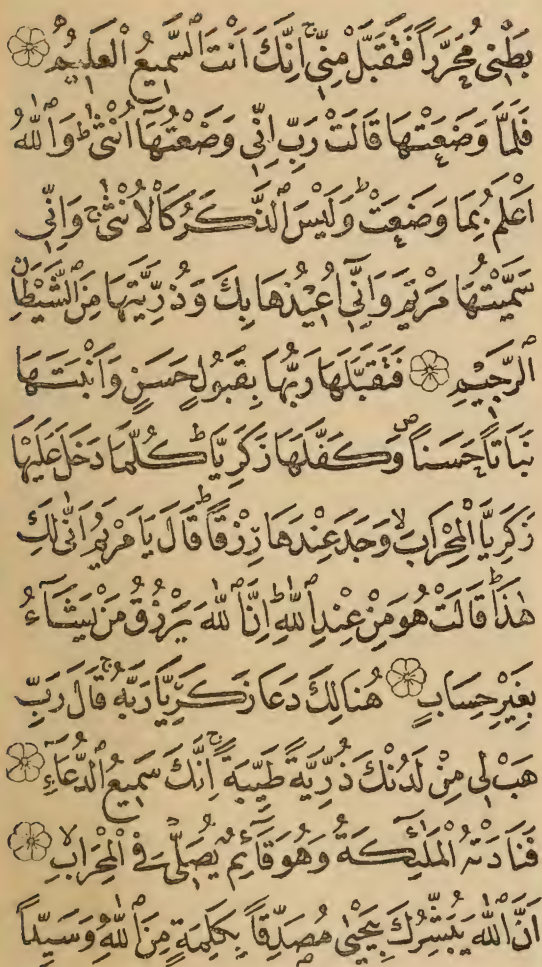 بَطْنِى مُحَرَّرًا فَتَقَبَّلْ مِنِّىۚ اِنَّكَ اَنْتَ السَّمِيعُ الْعَلِيمُ
فَلَمَّا وَضَعَتْهَا قَالَتْ رَبِّ اِنِّى وَضَعْتُهَٓا اُنْثٰىؕ وَاللّٰهُ
اَعْلَمُ بِمَا وَضَعَتْؕ وَلَيْسَ الذَّكَرُ كَالْاُنْثٰىۚ وَاِنِّى
سَمَّيْتُهَا مَرْيَمَ وَاِنِّٓى اُعِيذُهَا بِكَ وَذُرِّيَّتَهَا مِنَ الشَّيْطَانِ
الرَّجِيمِ فَتَقَبَّلَهَا رَبُّهَا بِقَبُولٍ حَسَنٍ وَاَنْبَتَهَا
نَبَاتًا حَسَنًاۖ وَكَفَّلَهَا زَكَرِيَّاؕ كُلَّمَا دَخَلَ عَلَيْهَا
زَكَرِيَّا الْمِحْرَابَۙ وَجَدَ عِنْدَهَا رِزْقًاؕ قَالَ يَا مَرْيَمُ اَنّٰى لَكِ
هٰذَاؕ قَالَتْ هُوَ مِنْ عِنْدِ اللّٰهِؕ اِنَّ اللّٰهَ يَرْزُقُ مَنْ يَشَٓاءُ
بِغَيْرِ حِسَابٍ هُنَالِكَ دَعَا زَكَرِيَّا رَبَّهُۚ قَالَ رَبِّ
هَبْ لِى مِنْ لَدُنْكَ ذُرِّيَّةً طَيِّبَةًۚ اِنَّكَ سَمِيعُ الدُّعَٓاءِ
فَنَادَتْهُ الْمَلٰٓئِكَةُ وَهُوَ قَٓائِمٌ يُصَلِّى فِى الْمِحْرَابِۙ
اَنَّ اللّٰهَ يُبَشِّرُكَ بِيَحْيٰى مُصَدِّقًا بِكَلِمَةٍ مِنَ اللّٰهِ وَسَيِّدًا